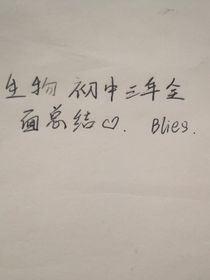 生物 初中三年全
面总结♡. Blies.